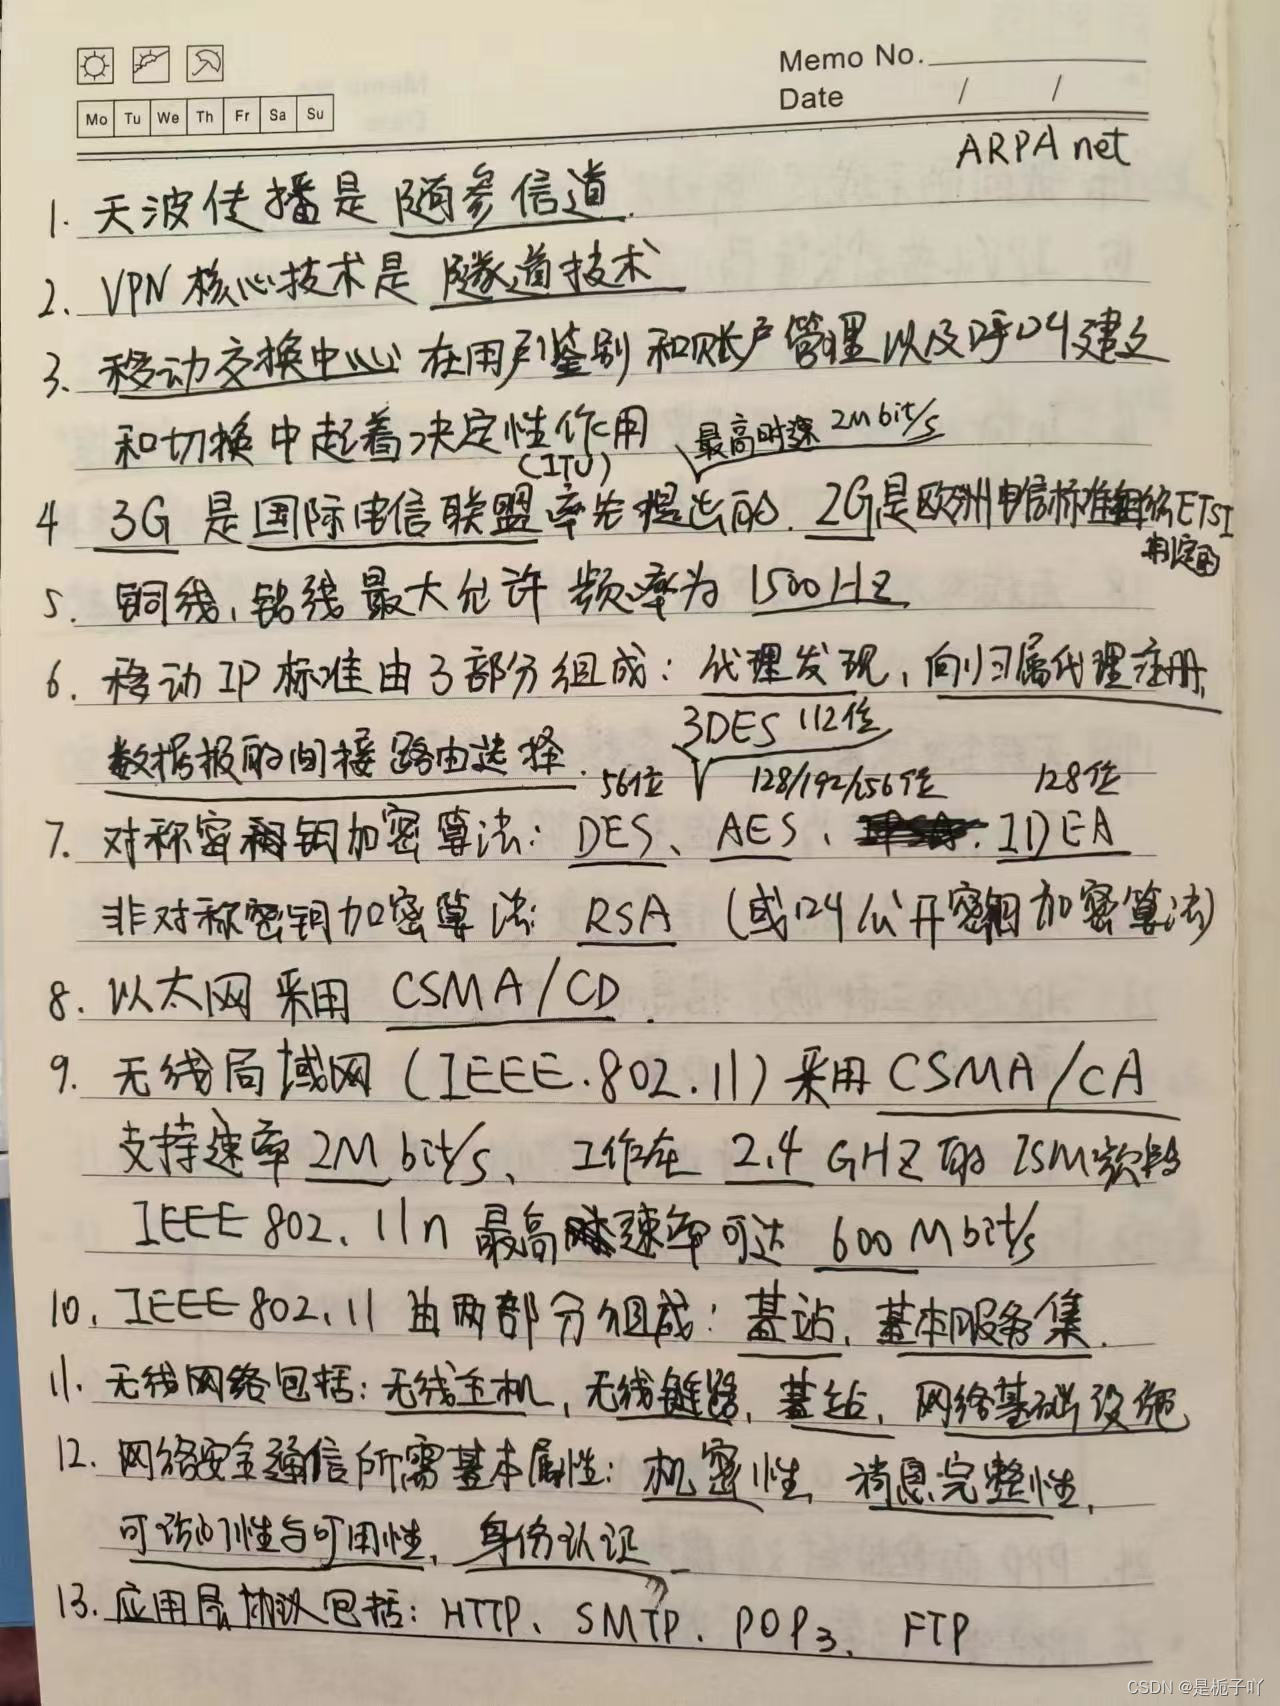 Memo No.
Date / /
Mo Tu We Th Fr Sa Su
ARPA net
1. 天波传播是 随参信道.
2. VPN 核心技术是 隧道技术
3. 移动交换中心 在用户鉴别 和账户管理 以及呼叫建立
和切换中起着决定性作用
最高时速 2Mbit/s
(ITU)
4 3G 是 国际电信联盟率先提出的. 2G是欧洲电信标准组织ETSI
制定的
5. 铜线、铝线最大允许 频率为 1500HZ
6. 移动 IP 标准由 3部分组成: 代理发现, 向归属代理注册,
3DES 112位
数据报的间接路由选择.
56位 128/192/256位 128位
7. 对称密钥加密算法: DES、AES、IDEA
非对称密钥加密算法: RSA (或叫公开密钥加密算法)
8. 以太网 采用 CSMA/CD.
9. 无线局域网 (IEEE.802.11) 采用 CSMA/CA
支持速率 2M bit/s、 工作在 2.4 GHZ 的 ISM频段
IEEE 802.11n 最高速率可达 600 Mbit/s
10. IEEE 802.11 由两部分组成: 基站、基本服务集.
11. 无线网络包括: 无线主机, 无线链路, 基站, 网络基础设施
12. 网络安全通信所需基本属性: 机密性, 消息完整性,
可访问性与可用性, 身份认证
13. 应用层协议包括: HTTP、SMTP、POP3、FTP
CSDN @是栀子吖